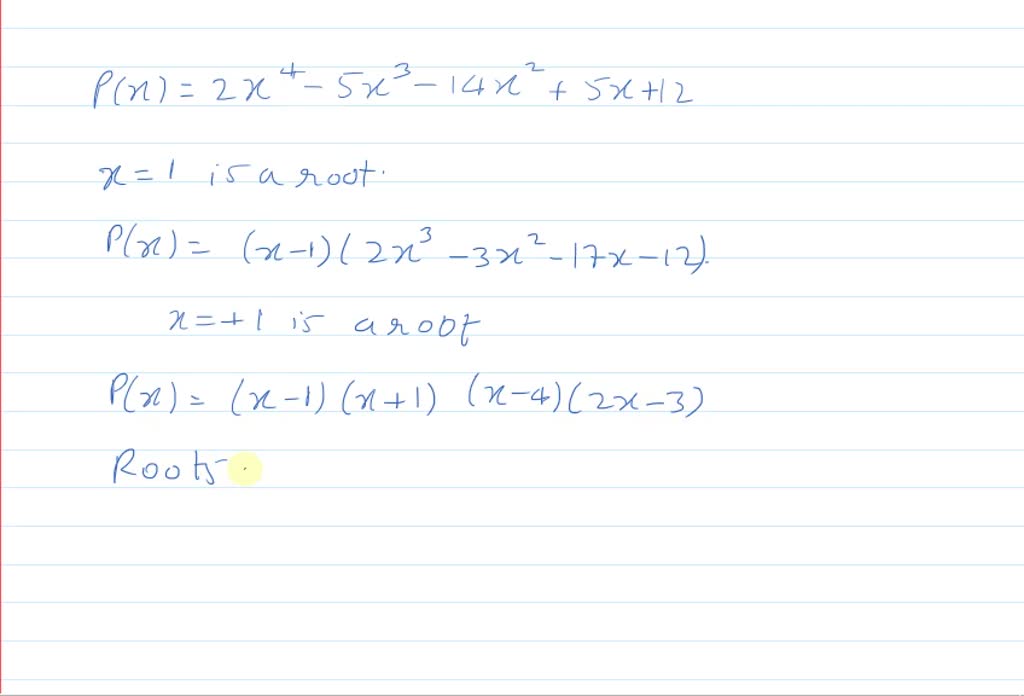 P(x) = 2x⁴ - 5x³ - 14x² + 5x + 12
x = 1 is a root.
P(x) = (x-1)(2x³ - 3x² - 17x - 12).
x = +1 is a root
P(x) = (x-1)(x+1) (x-4)(2x-3)
Roots